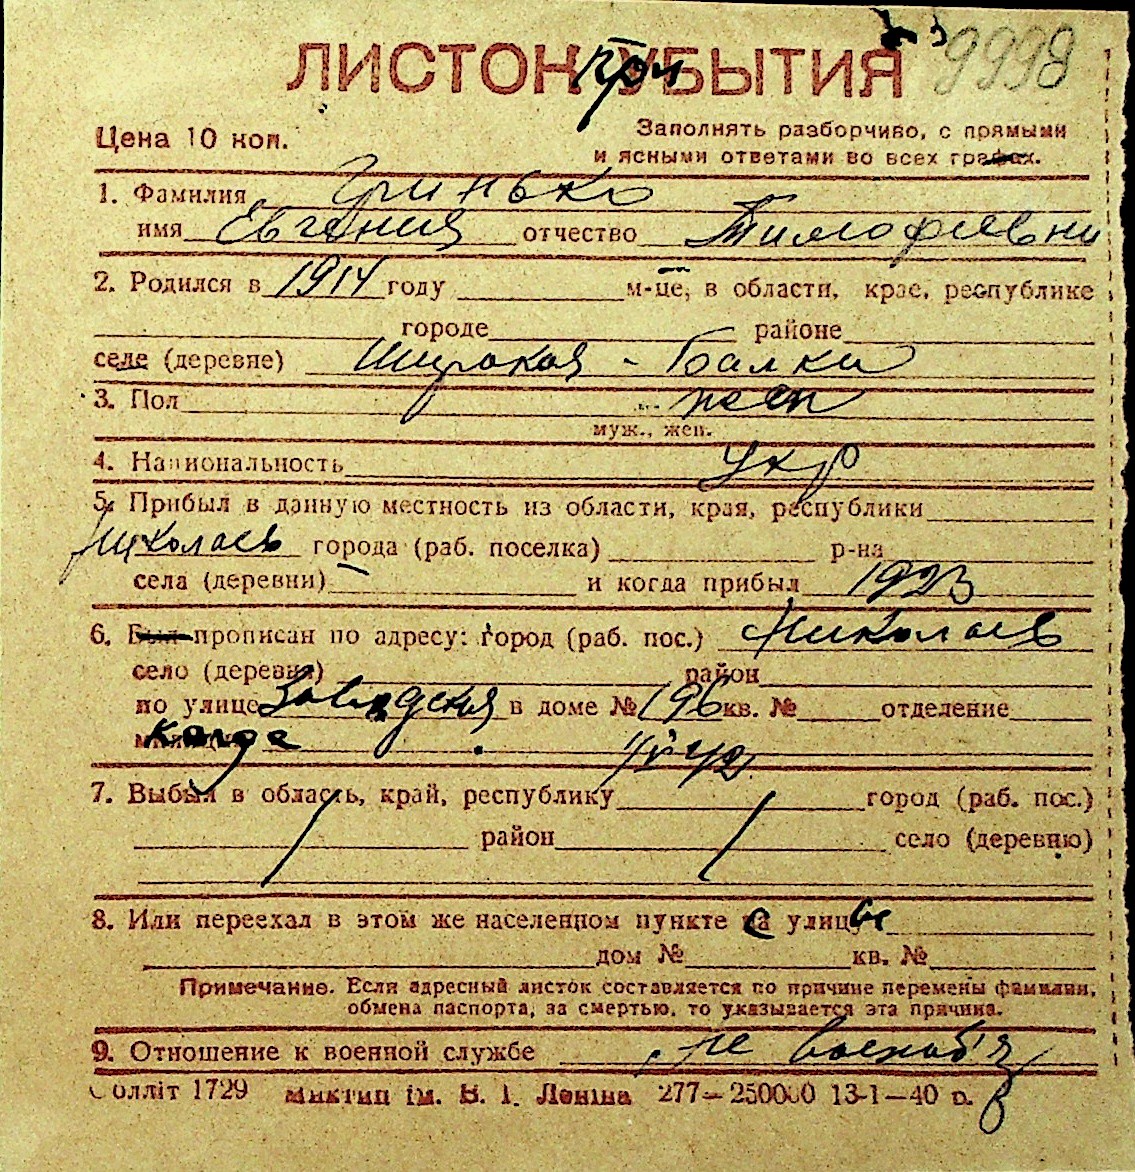 9998
ЛИСТОК при УБЫТИЯ
Цена 10 коп.
Заполнять разборчиво, с прямыми
и ясными ответами во всех графах.
1. Фамилия Гринько
имя Евгения отчество Тимофеевни
2. Родился в 1914 году м-це, в области, крае, республике
городе районе
селе (деревне) Широкая - Балка
3. Пол жен
муж., жен.
4. Национальность Укр
5. Прибыл в данную местность из области, края, республики
Николаев города (раб. поселка) р-на
села (деревни) — и когда прибыл 1923
6. Был прописан по адресу: город (раб. пос.) Николаев
село (деревня) район
по улице Заводская в доме № 196 кв. № отделение
милиции Когда
7. Выбыл в область, край, республику город (раб. пос.)
район село (деревню)
8. Или переехал в этом же населенном пункте с улицы
дом № кв. №
Примечание. Если адресный листок составляется по причине перемены фамилии,
обмена паспорта, за смертью, то указывается эта причина.
9. Отношение к военной службе не военноб'яз
Солліт 1729 Миктип ім. В. І. Леніна 277—250000 13-1—40 р.